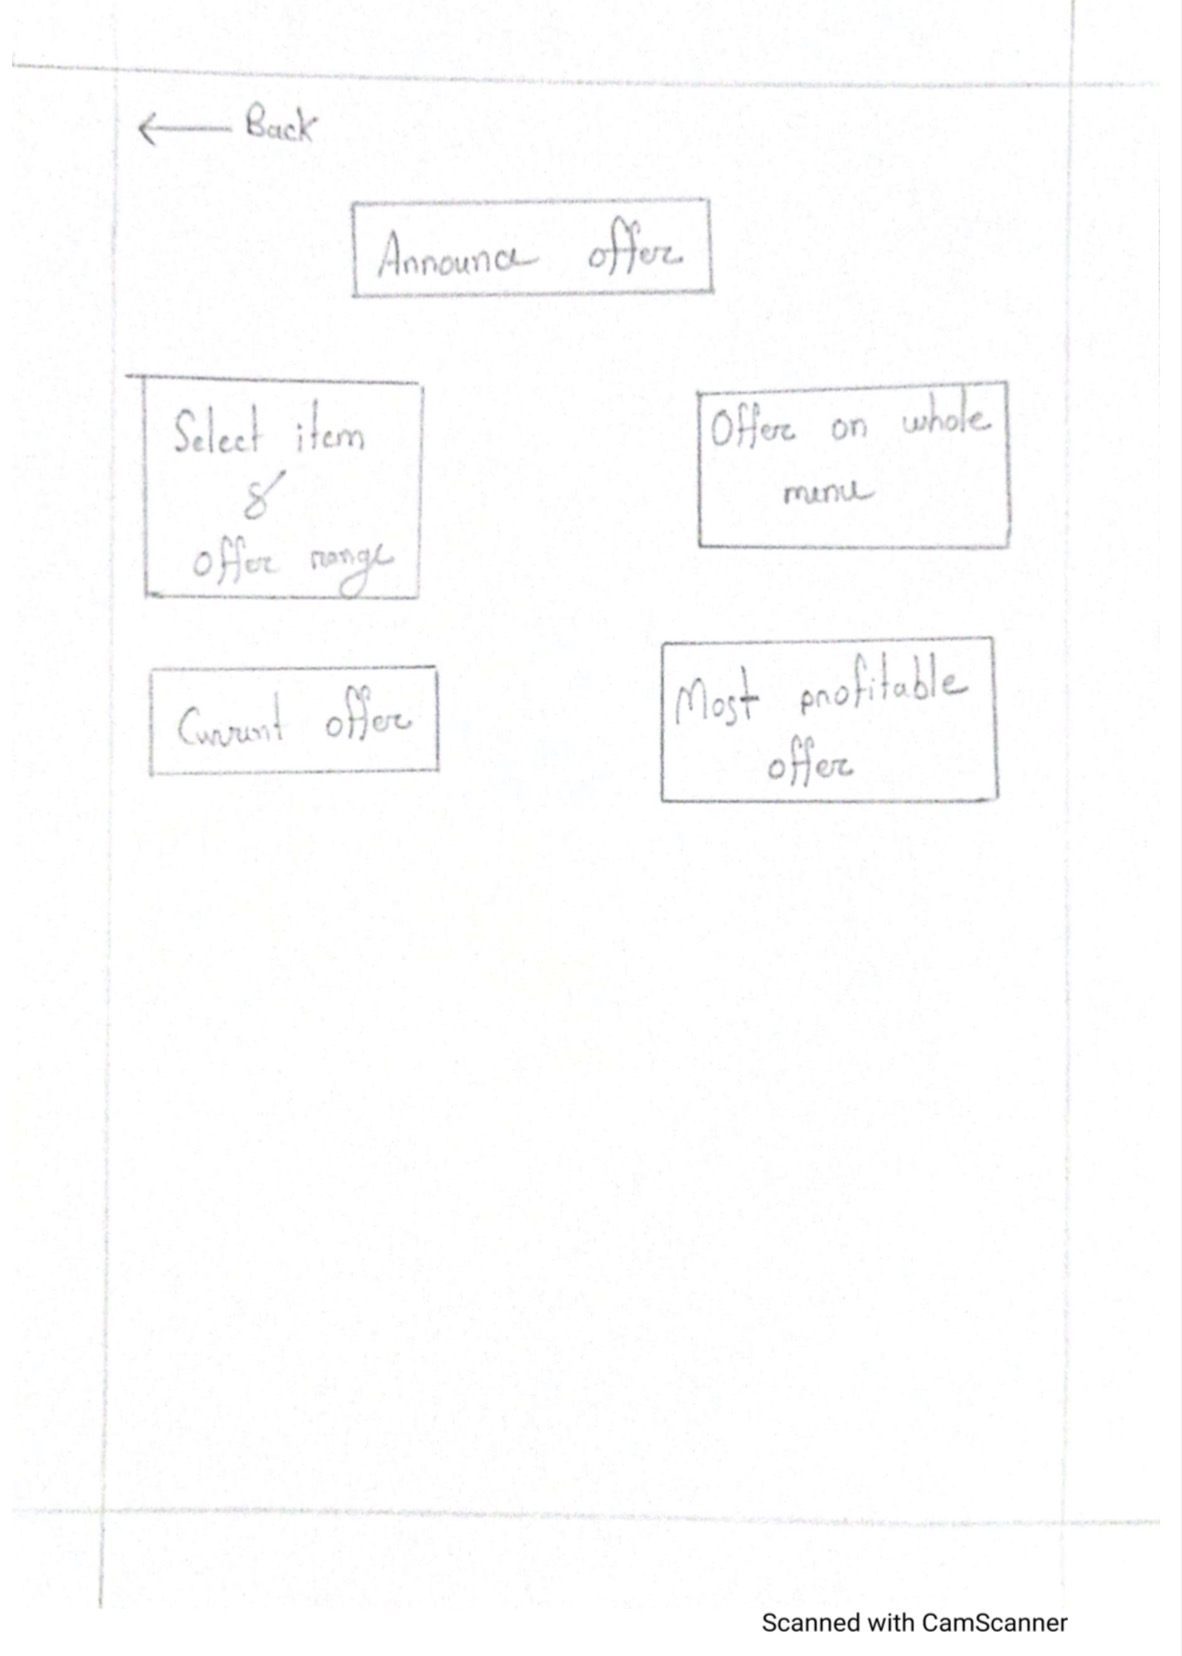 ← Back
Announce offer
Select item
&
offer range
Offer on whole
menu
Current offer
Most profitable
offer
Scanned with CamScanner